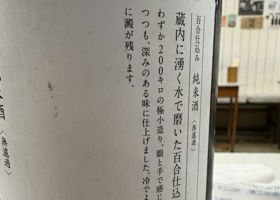 百合仕込み 純米酒〈無濾過〉
蔵内に湧く水で磨いた百合仕込
わずか200キロの極小造り。眼と手で感じ
つつも、深みのある味に仕上げました。冷でよ
に澱が残ります。
酒〈無濾過〉